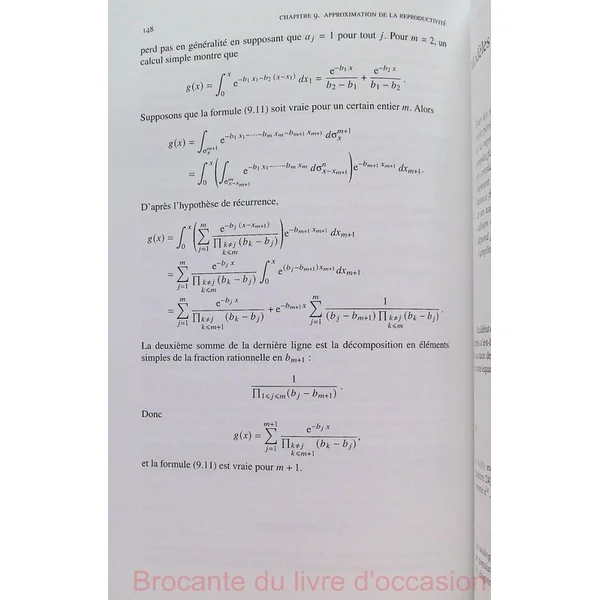 148
CHAPITRE 9. APPROXIMATION DE LA REPRODUCTIVITÉ
perd pas en généralité en supposant que a_j = 1 pour tout j. Pour m = 2, un
calcul simple montre que
g(x) = ∫_0^x e^{-b_1 x_1 - b_2 (x - x_1)} dx_1 = \frac{e^{-b_1 x}}{b_2 - b_1} + \frac{e^{-b_2 x}}{b_1 - b_2} .
Supposons que la formule (9.11) soit vraie pour un certain entier m. Alors
g(x) = ∫_{σ_x^{m+1}} e^{-b_1 x_1 - ··· - b_m x_m - b_{m+1} x_{m+1}} dσ_x^{m+1}
= ∫_0^x ( ∫_{σ_{x-x_{m+1}}^m} e^{-b_1 x_1 - ··· - b_m x_m} dσ_{x-x_{m+1}}^n ) e^{-b_{m+1} x_{m+1}} dx_{m+1}.
D'après l'hypothèse de récurrence,
g(x) = ∫_0^x ( ∑_{j=1}^m \frac{e^{-b_j (x - x_{m+1})}}{∏_{k≠j, k⩽m} (b_k - b_j)} ) e^{-b_{m+1} x_{m+1}} dx_{m+1}
= ∑_{j=1}^m \frac{e^{-b_j x}}{∏_{k≠j, k⩽m} (b_k - b_j)} ∫_0^x e^{(b_j - b_{m+1}) x_{m+1}} dx_{m+1}
= ∑_{j=1}^m \frac{e^{-b_j x}}{∏_{k≠j, k⩽m+1} (b_k - b_j)} + e^{-b_{m+1} x} ∑_{j=1}^m \frac{1}{(b_j - b_{m+1}) ∏_{k≠j, k⩽m} (b_k - b_j)} .
La deuxième somme de la dernière ligne est la décomposition en éléments
simples de la fraction rationnelle en b_{m+1} :
\frac{1}{∏_{1⩽j⩽m} (b_j - b_{m+1})} .
Donc
g(x) = ∑_{j=1}^{m+1} \frac{e^{-b_j x}}{∏_{k≠j, k⩽m+1} (b_k - b_j)},
et la formule (9.11) est vraie pour m + 1.
Brocante du livre d'occasion